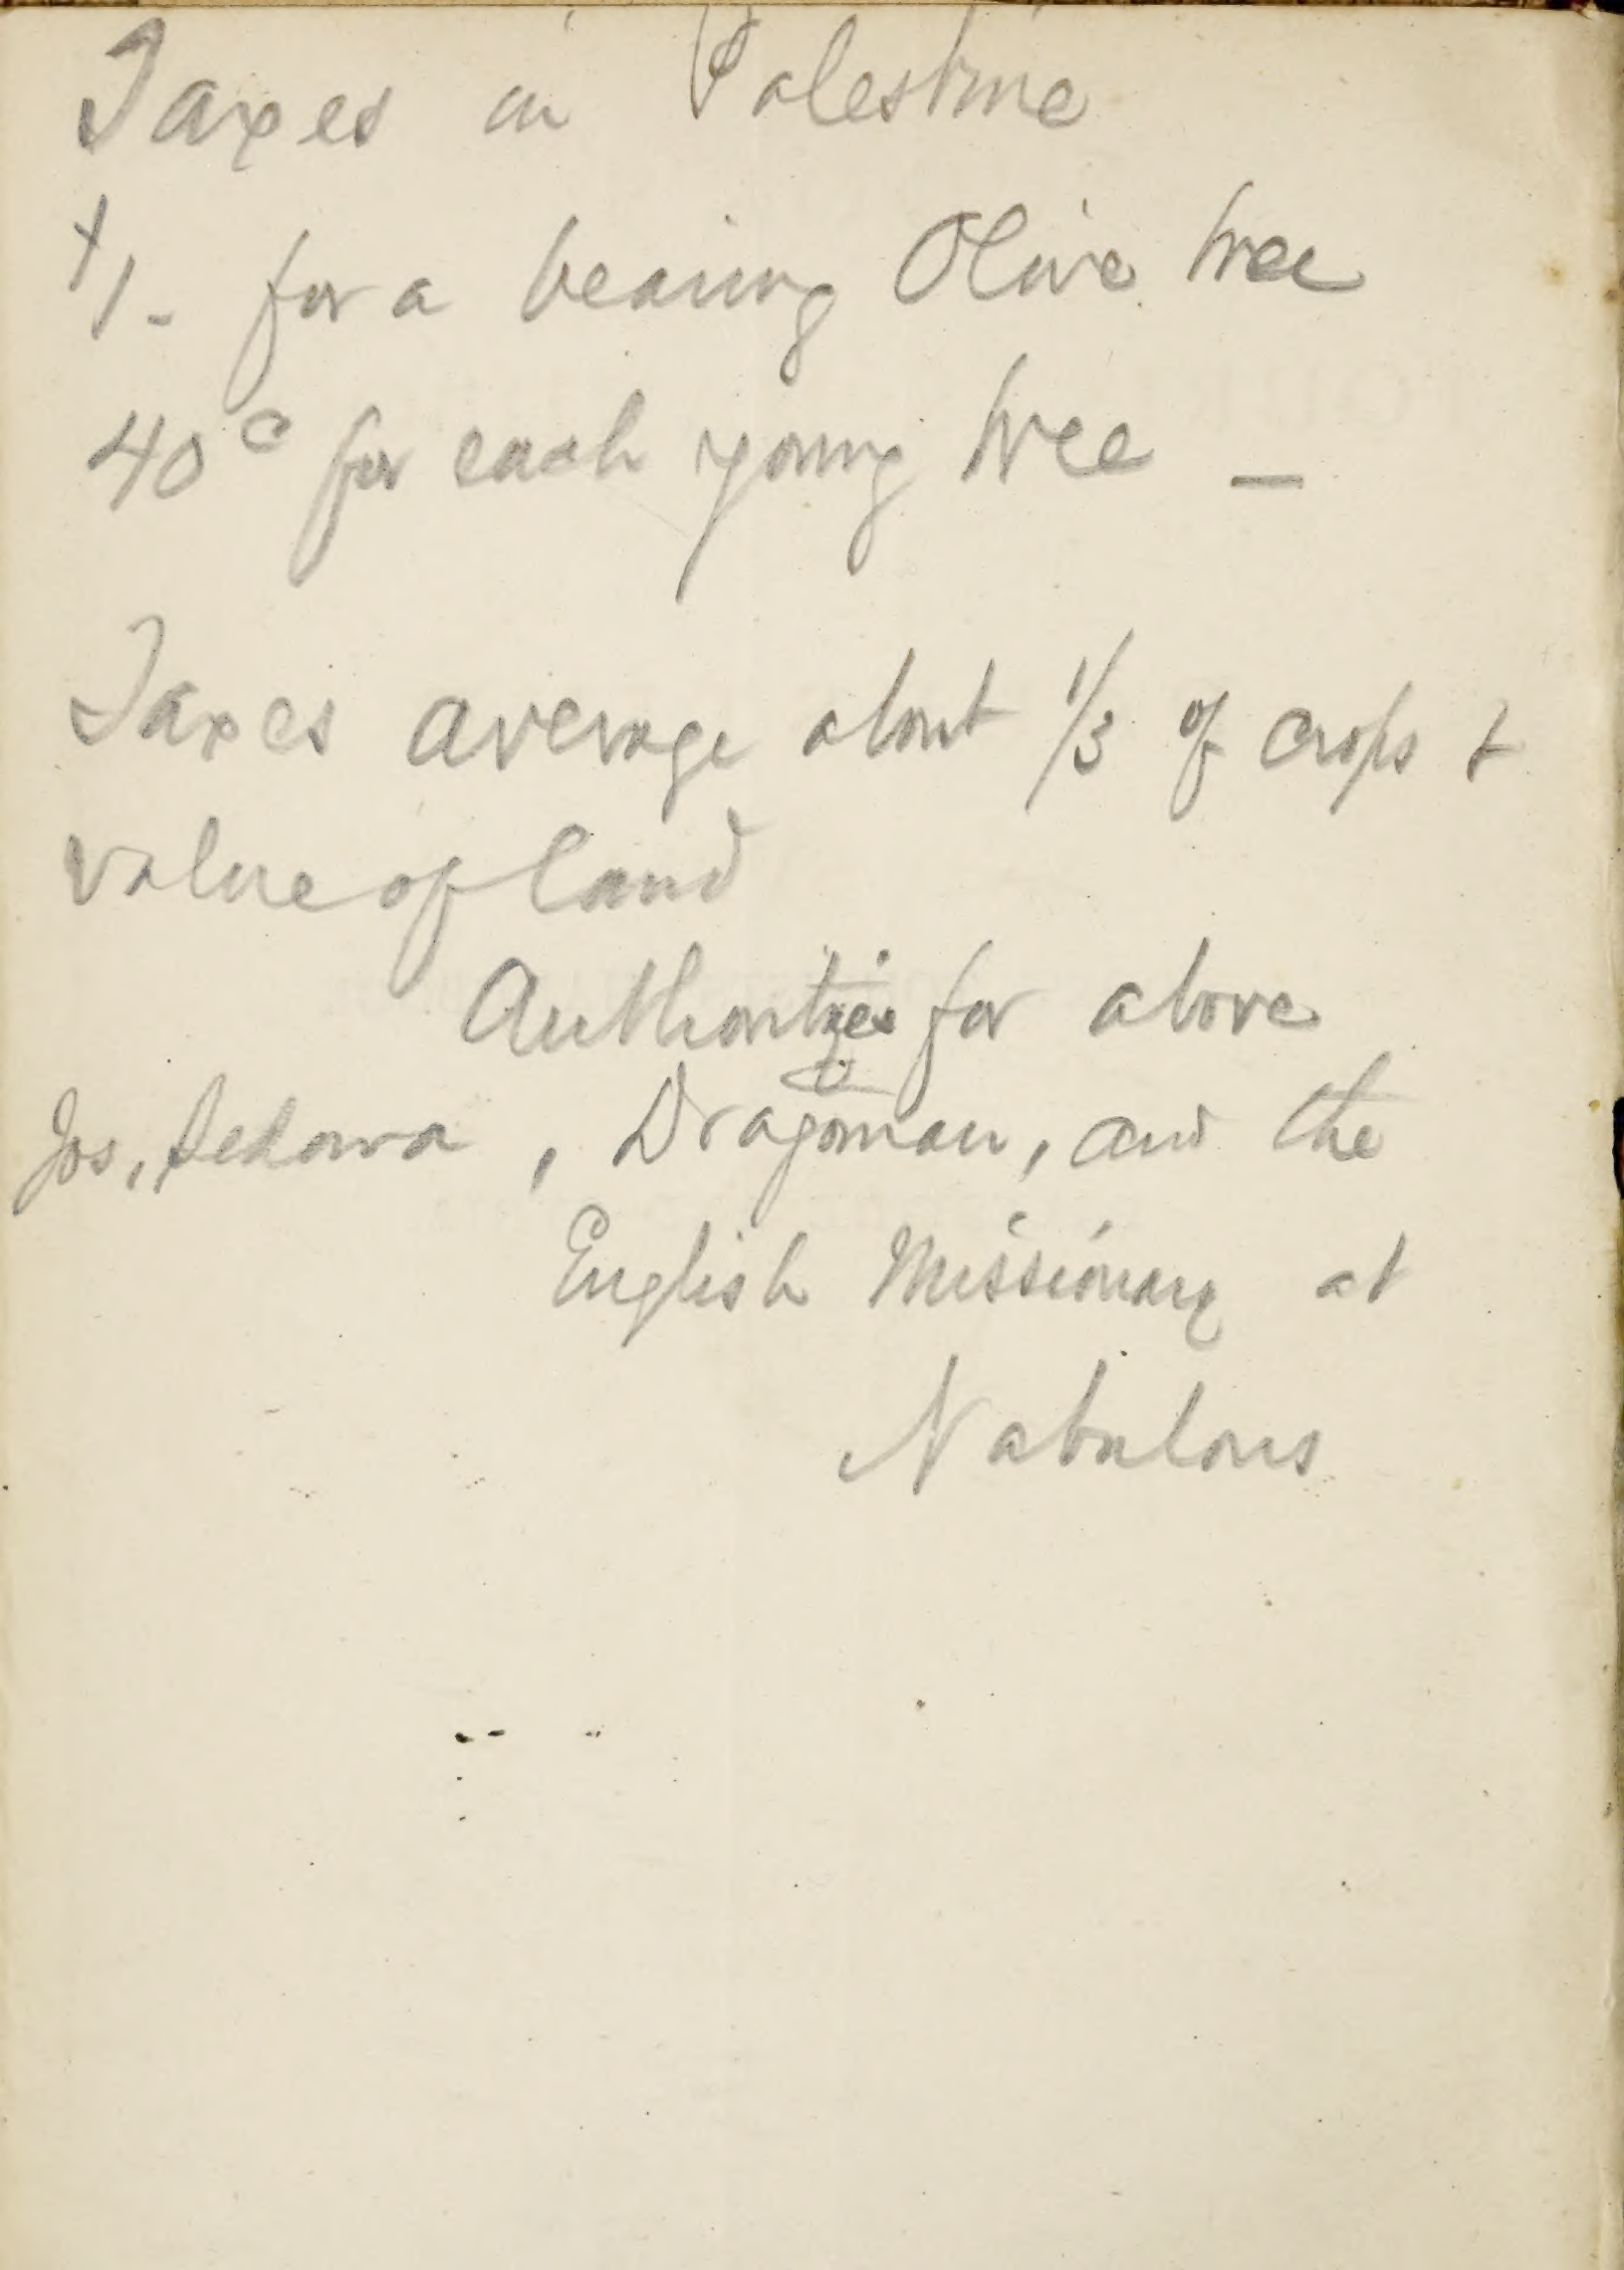 Taxes in Palestine
$1- for a bearing Olive tree
40c for each young tree —
Taxes average about 1/3 of crops &
value of land
Authorities for above
Jos, , Dragoman, and the
English Missionary at
Nabulous